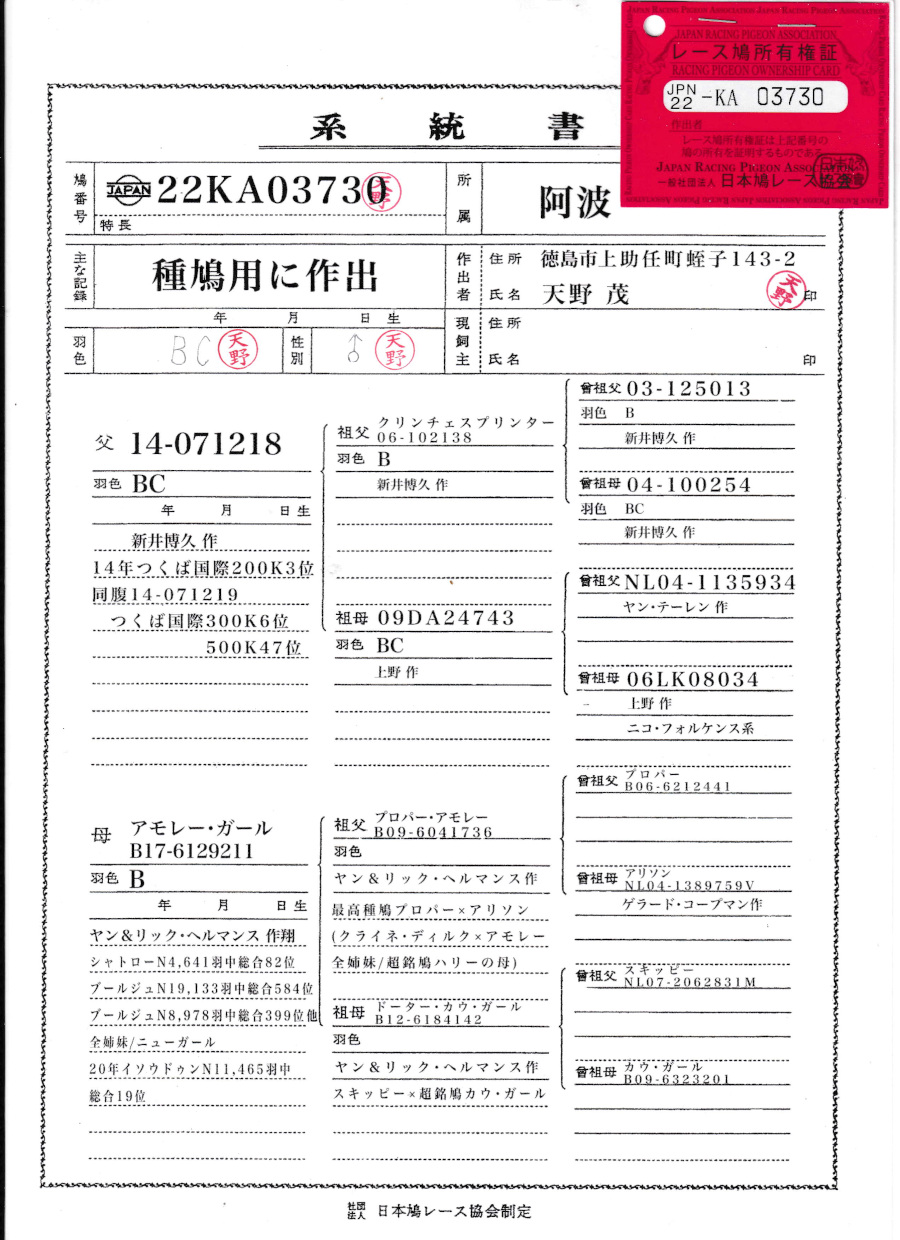 JAPAN RACING PIGEON ASSOCIATION
レース鳩所有権証
RACING PIGEON OWNERSHIP CARD
JPN 22 -KA 03730
作出者
レース鳩所有権証は上記番号の
鳩の所有を証明するものである
JAPAN RACING PIGEON ASSOCIATION
一般社団法人 日本鳩レース協会
系統書
鳩番号 JAPAN 22KA03730 天野
特長
所属 阿波
主な記録 種鳩用に作出
作出者 住所 徳島市上助任町蛭子143-2
氏名 天野 茂 天野 印
年 月 日生
羽色 BC 天野 性別 ♂ 天野
現飼主 住所
氏名 印
父 14-071218
羽色 BC
年 月 日生
新井博久 作
14年つくば国際200K3位
同腹14-071219
つくば国際300K6位
500K47位
祖父 クリンチェスプリンター
06-102138
羽色 B
新井博久 作
祖母 09DA24743
羽色 BC
上野 作
曾祖父 03-125013
羽色 B
新井博久 作
曾祖母 04-100254
羽色 BC
新井博久 作
曾祖父 NL04-1135934
ヤン・テーレン 作
曾祖母 06LK08034
上野 作
ニコ・フォルケンス系
母 アモレー・ガール
B17-6129211
羽色 B
年 月 日生
ヤン&リック・ヘルマンス 作翔
シャトローN4,641羽中総合82位
ブールジュN19,133羽中総合584位
ブールジュN8,978羽中総合399位他
全姉妹/ニューガール
20年イソウドゥンN11,465羽中
総合19位
祖父 プロパー・アモレー
B09-6041736
羽色
ヤン&リック・ヘルマンス作
最高種鳩プロパー×アリソン
(クライネ・ディルク×アモレー
全姉妹/超銘鳩ハリーの母)
祖母 ドーター・カウ・ガール
B12-6184142
羽色
ヤン&リック・ヘルマンス作
スキッピー×超銘鳩カウ・ガール
曾祖父 プロパー
B06-6212441
曾祖母 アリソン
NL04-1389759V
ゲラード・コープマン作
曾祖父 スキッピー
NL07-2062831M
曾祖母 カウ・ガール
B09-6323201
社団法人 日本鳩レース協会制定